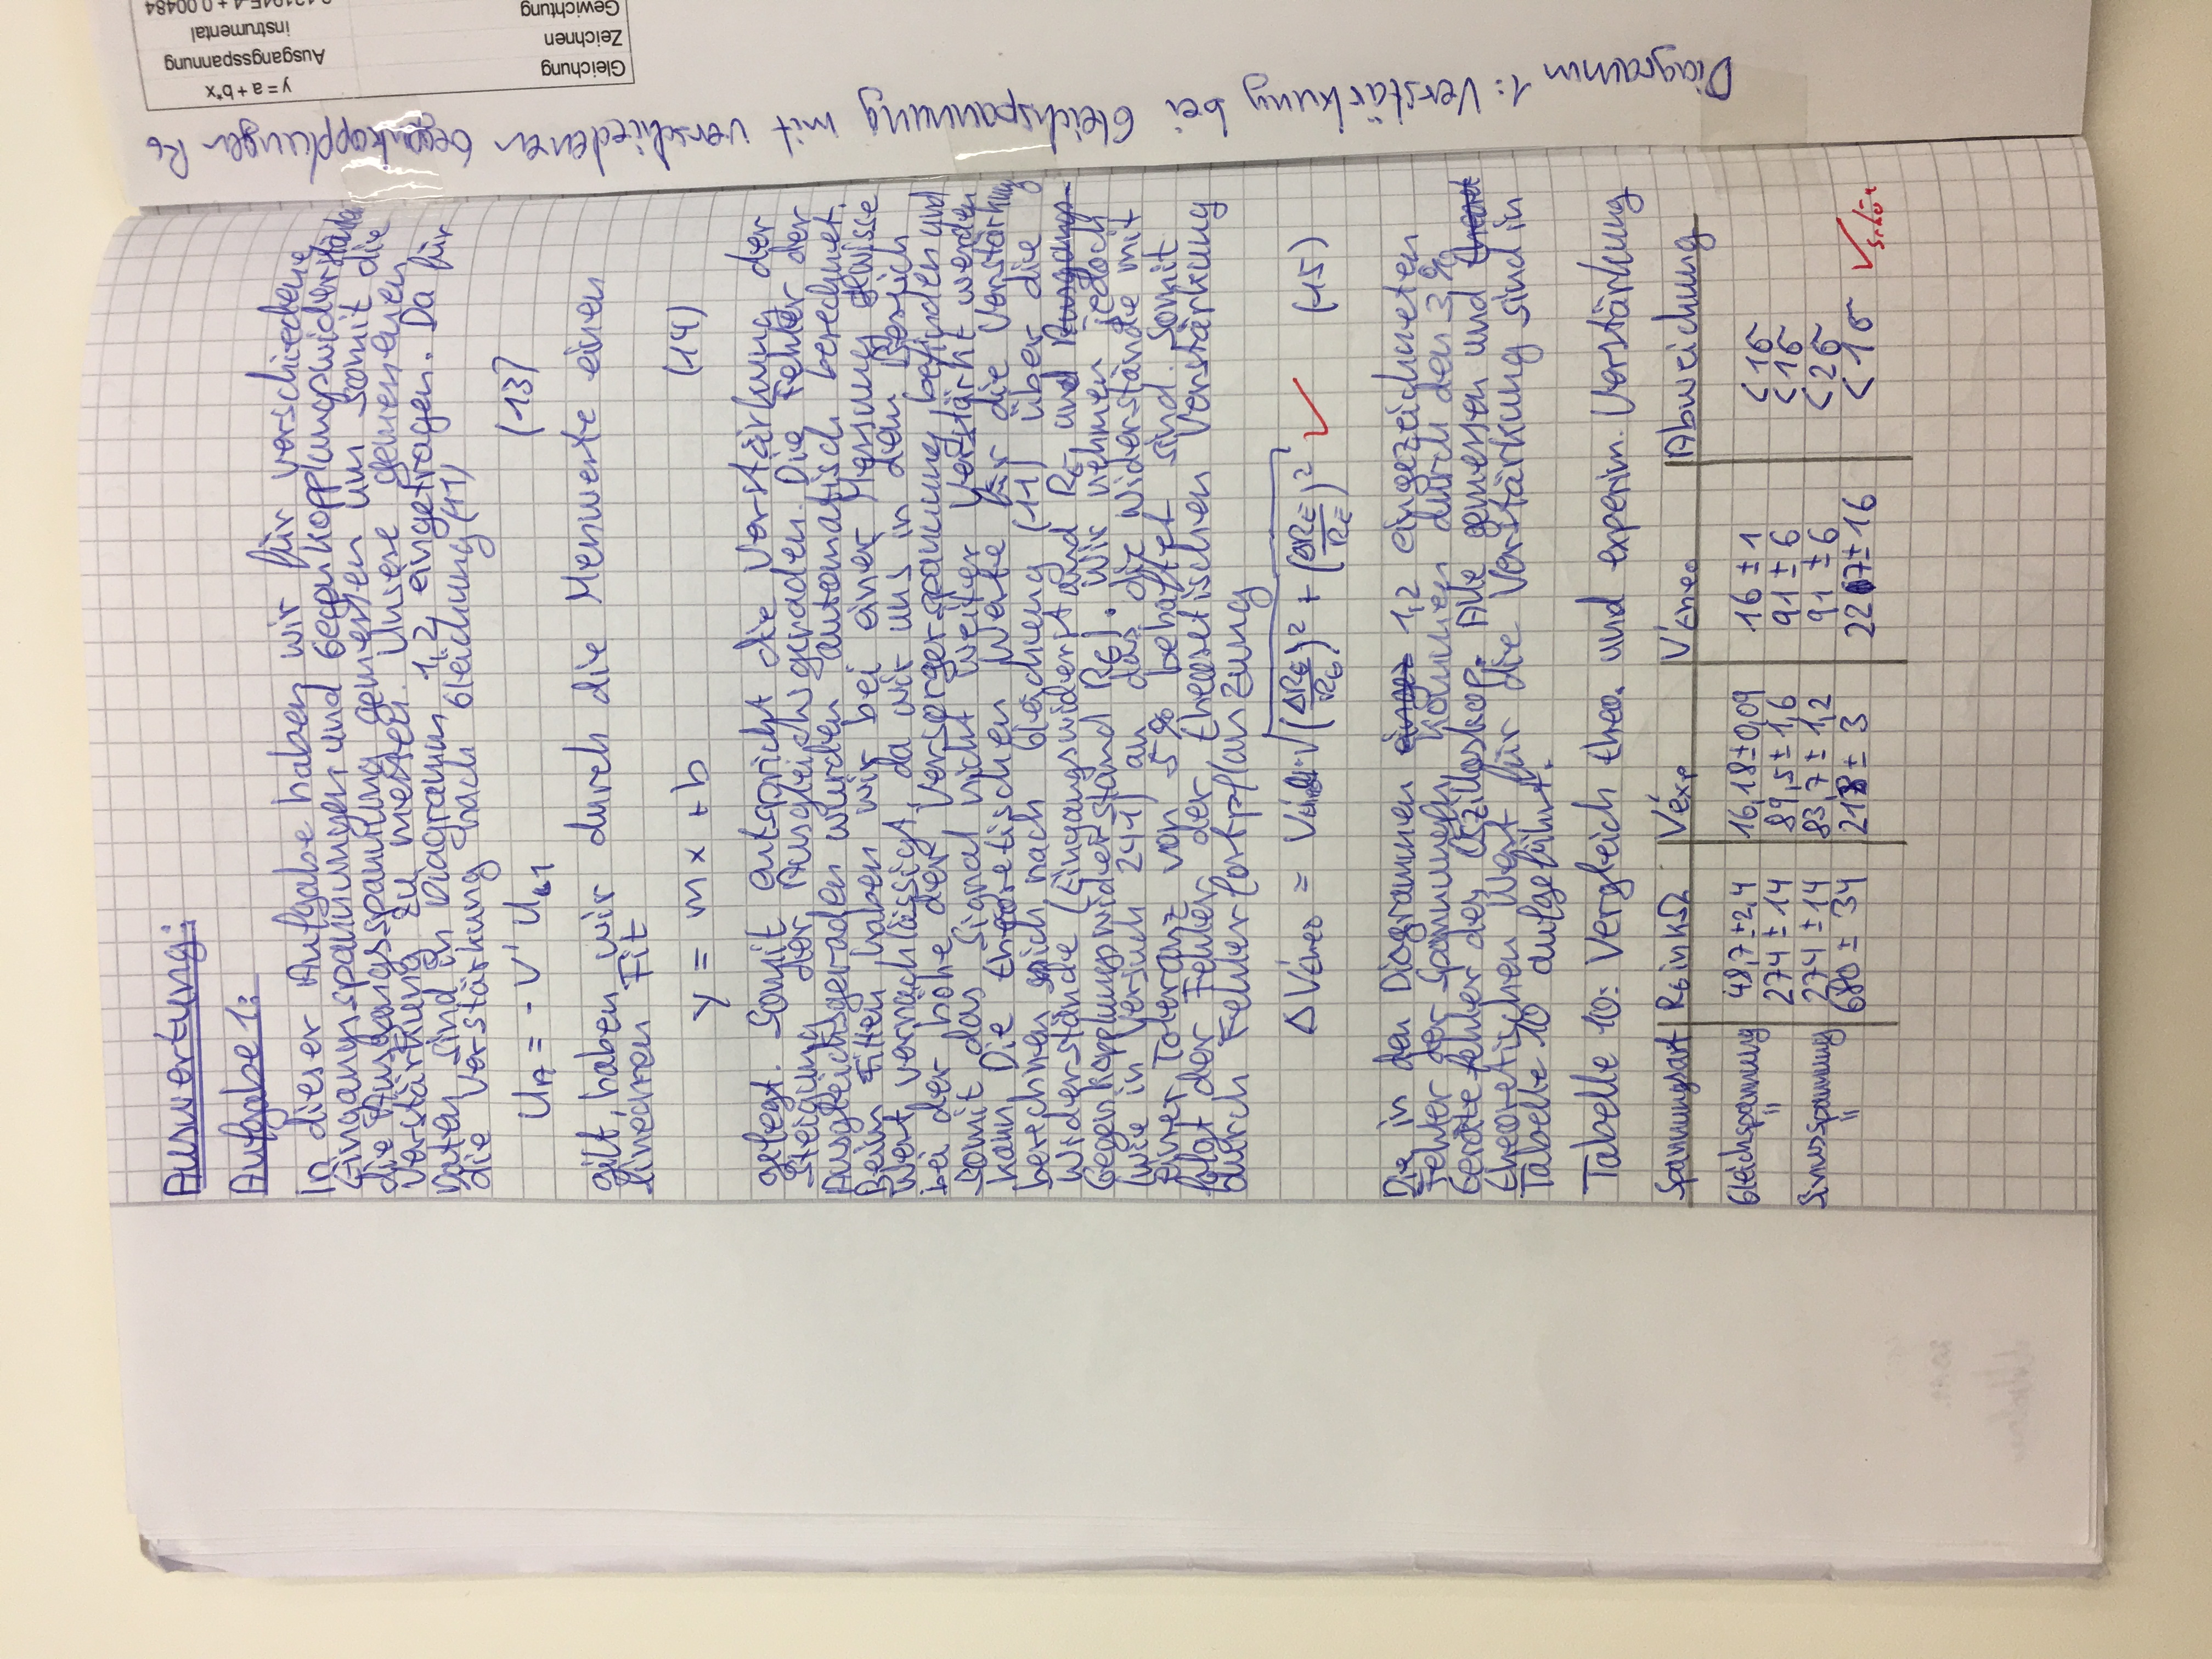 Auswertung:
Aufgabe 1:
In dieser Aufgabe haben wir für verschiedene
Eingangsspannungen und Gegenkopplungswiderstände
die Ausgangsspannung gemessen um somit die
Verstärkung zu messen. Unsere gemessenen
Daten sind in Diagramm 1,2 eingetragen. Da für
die Verstärkung nach Gleichung (11)
U_A = - V' U_1 (13)
gilt, haben wir durch die Messwerte einen
linearen Fit
y = mx + b (14)
gelegt. Somit entspricht die Verstärkung der
Steigung der Ausgleichsgeraden. Die Fehler der
Ausgleichsgeraden wurden automatisch berechnet.
Beim Fitten haben wir bei einer Messung gewisse
Wert vernachlässigt, da wir uns in dem Bereich
bei der höhe der Versorgerspannung befinden und
somit das Signal nicht weiter verstärkt werden
kann. Die theoretischen Werte für die Verstärkung
berechnen sich nach Gleichung (11) über die
Widerstände (Eingangswiderstand R_E und Ausgangs-
Gegenkopplungswiderstand R_G). Wir nehmen jedoch
(wie in Versuch 241) an das die Widerstände mit
einer Toleranz von 5% behaftet sind. Somit
folgt der Fehler der theoretischen Verstärkung
durch Fehlerfortpflanzung
ΔV'theo = V'theo · √((ΔR_G/R_G)² + (ΔR_E/R_E)²) ✓ (15)
Die in den Diagrammen eingez 1,2 eingezeichneten
Fehler der Spannungen kommen durch den 3%
Gerätefehler des Oszilloskop. Alle gemessen und theoret
theoretischen Wert für die Verstärkung sind in
Tabelle 10 aufgeführt.
Tabelle 10: Vergleich theo. und experim. Verstärkung
Spannungsart R_G in kΩ V'exp V'theo Abweichung
Gleichspannung 48,7±2,4 16,18±0,09 16±1 <1σ
" 274±14 89,5±1,6 91±6 <1σ
Sinusspannung 274±14 83,7±1,2 91±6 <2σ
" 680±34 218±3 227±16 <1σ ✓ schön
Diagramm 1: Verstärkung bei Gleichspannung mit verschiedenen Gegenkopplungen R_G
Gleichung y = a + b*x
Zeichnen Ausgangsspannung
Gewichtung instrumental